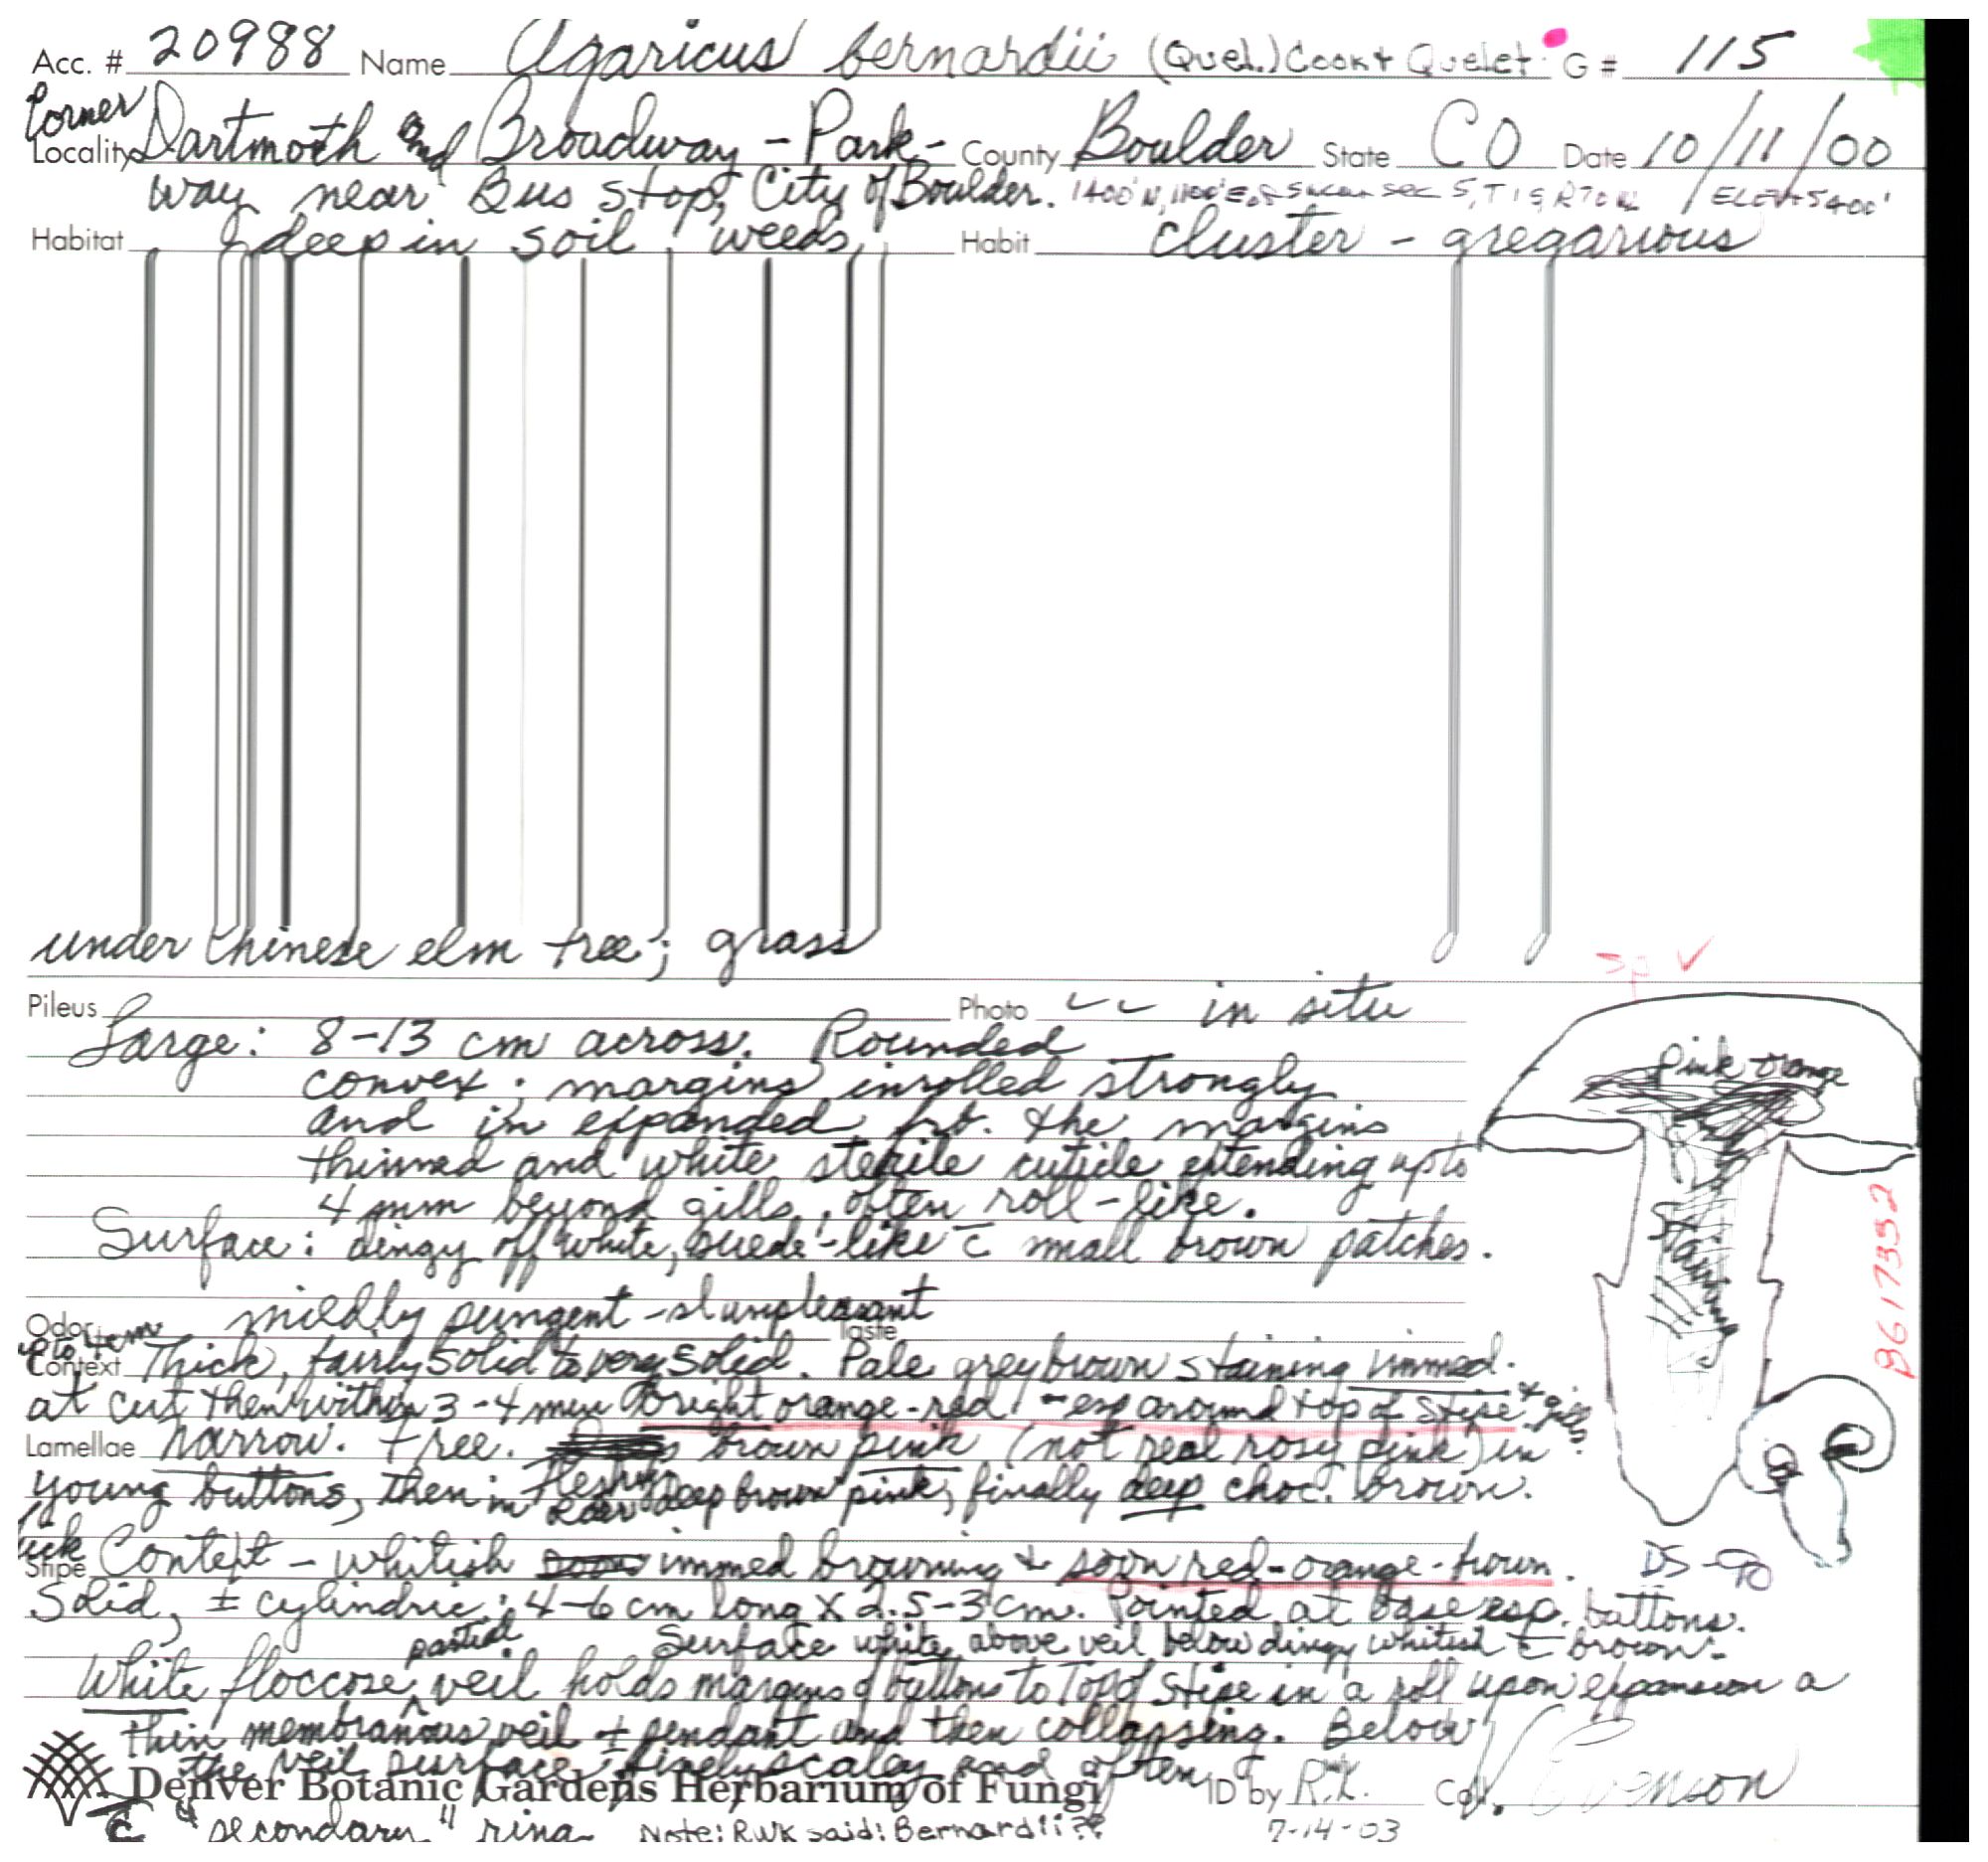 Acc. # 20988 Name Agaricus bernardii (Quel.) Cook + Quelet G # 115
Corner
Locality Dartmoth and Broadway - Park- County Boulder State CO Date 10/11/00
way near Bus Stop, City of Boulder. 1400' N, 1100' E of SW cor sec 5, T1S, R70W ELEV 5400'
Habitat deep in soil, weeds, Habit cluster - gregarious
under Chinese elm tree; grass
sp ✓
Pileus Photo in situ
Large: 8-13 cm across. Rounded
convex; margins inrolled strongly
and in expanded frb. the margins
thinned and white sterile cuticle extending up to
4 mm beyond gills, often roll-like.
Surface: dingy off white, suede-like c̄ small brown patches.
pink orange
Staining
B617352
Odor mildly pungent - sl unpleasant Taste
up to 4 cm
Context Thick, fairly solid to very solid. Pale grey brown staining immed.
at cut then within 3-4 min bright orange-red - esp around top of stipe + gills.
Lamellae narrow. free. brown pink (not real rosy pink) in
young buttons, then in older deep brown pink, finally deep choc. brown.
Stipe Context - whitish immed browning + soon red-orange-brown. DS-90
Solid, ± cylindric; 4-6 cm long x 2.5-3 cm. Pointed at base esp. buttons.
Surface white above veil below dingy whitish c̄ brown.
White floccose partial veil holds margins of buttons to top of stipe in a roll upon expansion a
thin membranous veil ± pendant and then collapsing. Below
the veil surface finely scaley and often
Denver Botanic Gardens Herbarium of Fungi ID by R.K. Col. V. Evenson
c̄ "secondary" ring Note: RWK said: Bernardii?? 7-14-03